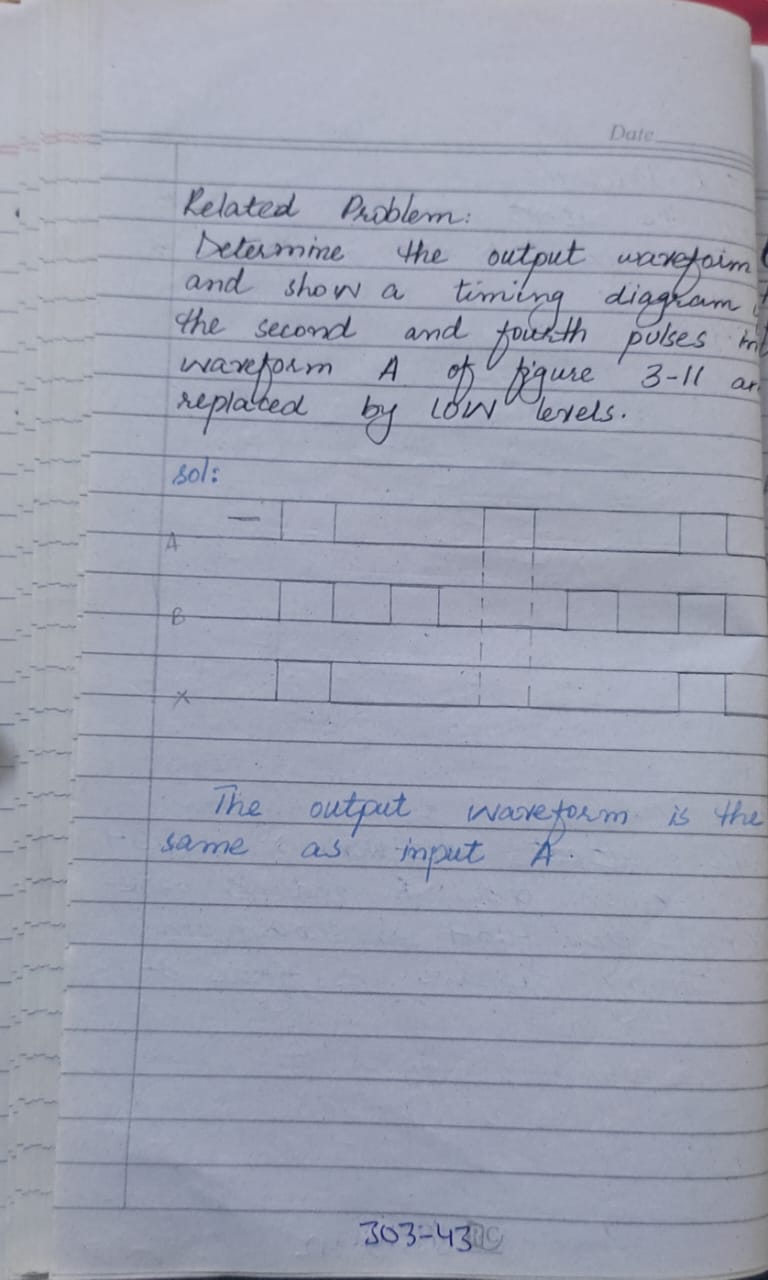 Date
Related Problem:
Determine the output waveform
and show a timing diagram
the second and fourth pulses in
waveform A of figure 3-11 ar
replaced by LOW levels.
sol:
A
B
X
The output waveform is the
same as input A.
303-43